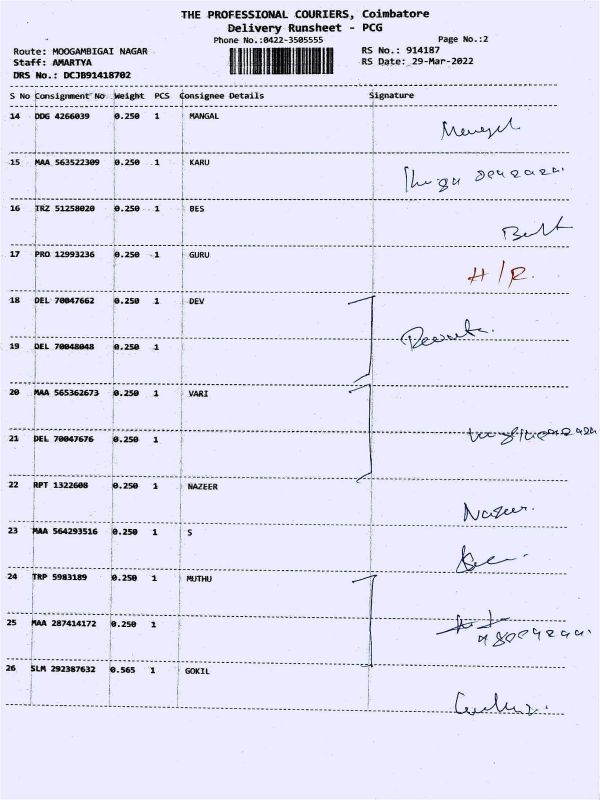 THE PROFESSIONAL COURIERS, Coimbatore
Delivery Runsheet - PCG
Phone No.:0422-3505555
Page No.:2
Route: MOOGAMBIGAI NAGAR
RS No.: 914187
Staff: AMARTYA
RS Date: 29-Mar-2022
DRS No.: DCJB91418702
S No Consignment No Weight PCS Consignee Details Signature
14 DDG 4266039 0.250 1 MANGAL
15 MAA 563522309 0.250 1 KARU
16 TRZ 51258020 0.250 1 BES
17 PRO 12993236 0.250 1 GURU
H/R.
18 DEL 70047662 0.250 1 DEV
19 DEL 70048048 0.250 1
20 MAA 565362673 0.250 1 VARI
21 DEL 70047676 0.250 1
22 RPT 1322608 0.250 1 NAZEER
Nazeer.
23 MAA 564293516 0.250 1 S
24 TRP 5983189 0.250 1 MUTHU
25 MAA 287414172 0.250 1
26 SLM 292387632 0.565 1 GOKIL